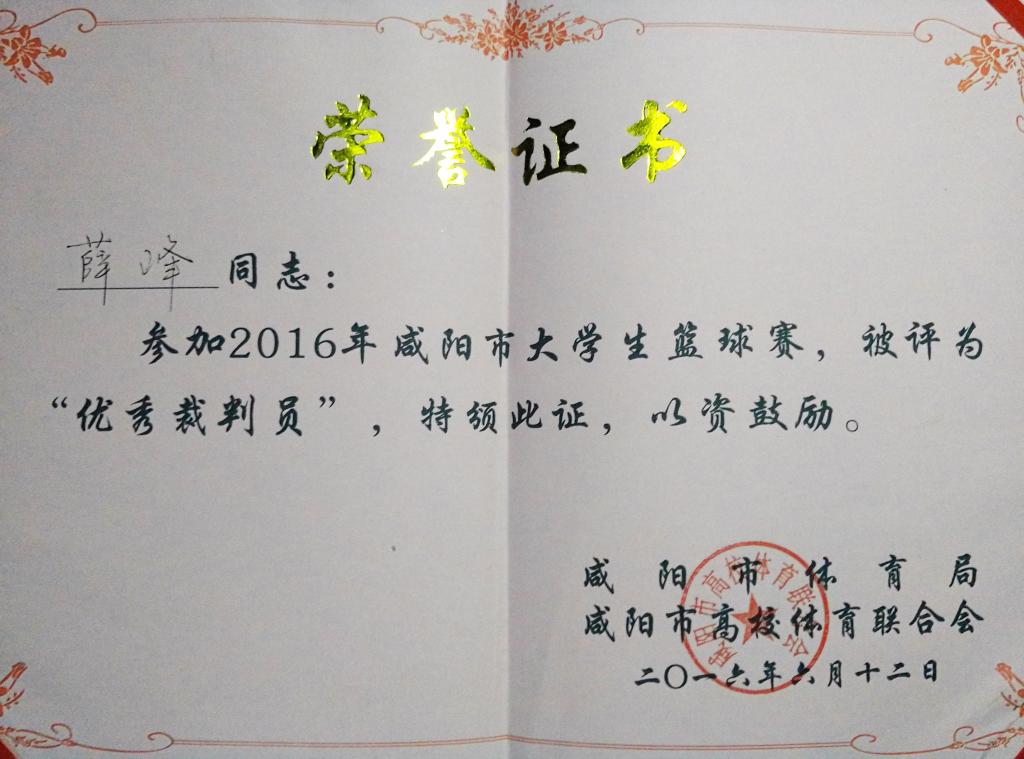 荣誉证书
薛峰同志：
参加2016年咸阳市大学生篮球赛，被评为
“优秀裁判员”，特颁此证，以资鼓励。
咸阳市体育局
咸阳市高校体育联合会
二〇一六年六月十二日
咸阳市高校体育联合会